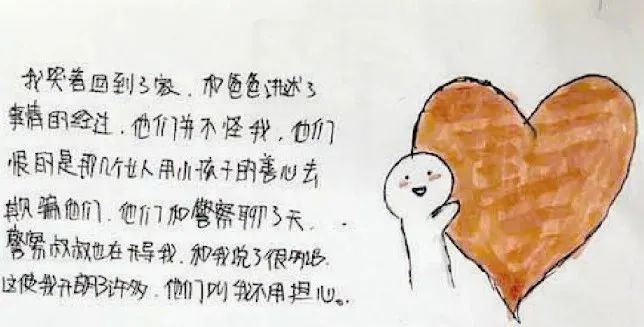 我哭着回到了家,和爸爸讲述了
事情的经过,他们并不怪我,他们
恨的是那几个女人用小孩子的善心去
欺骗他们,他们和警察聊了天,..
警察叔叔也在开导我,和我说了很多话
这使我开朗了许多,他们叫我不用担心。